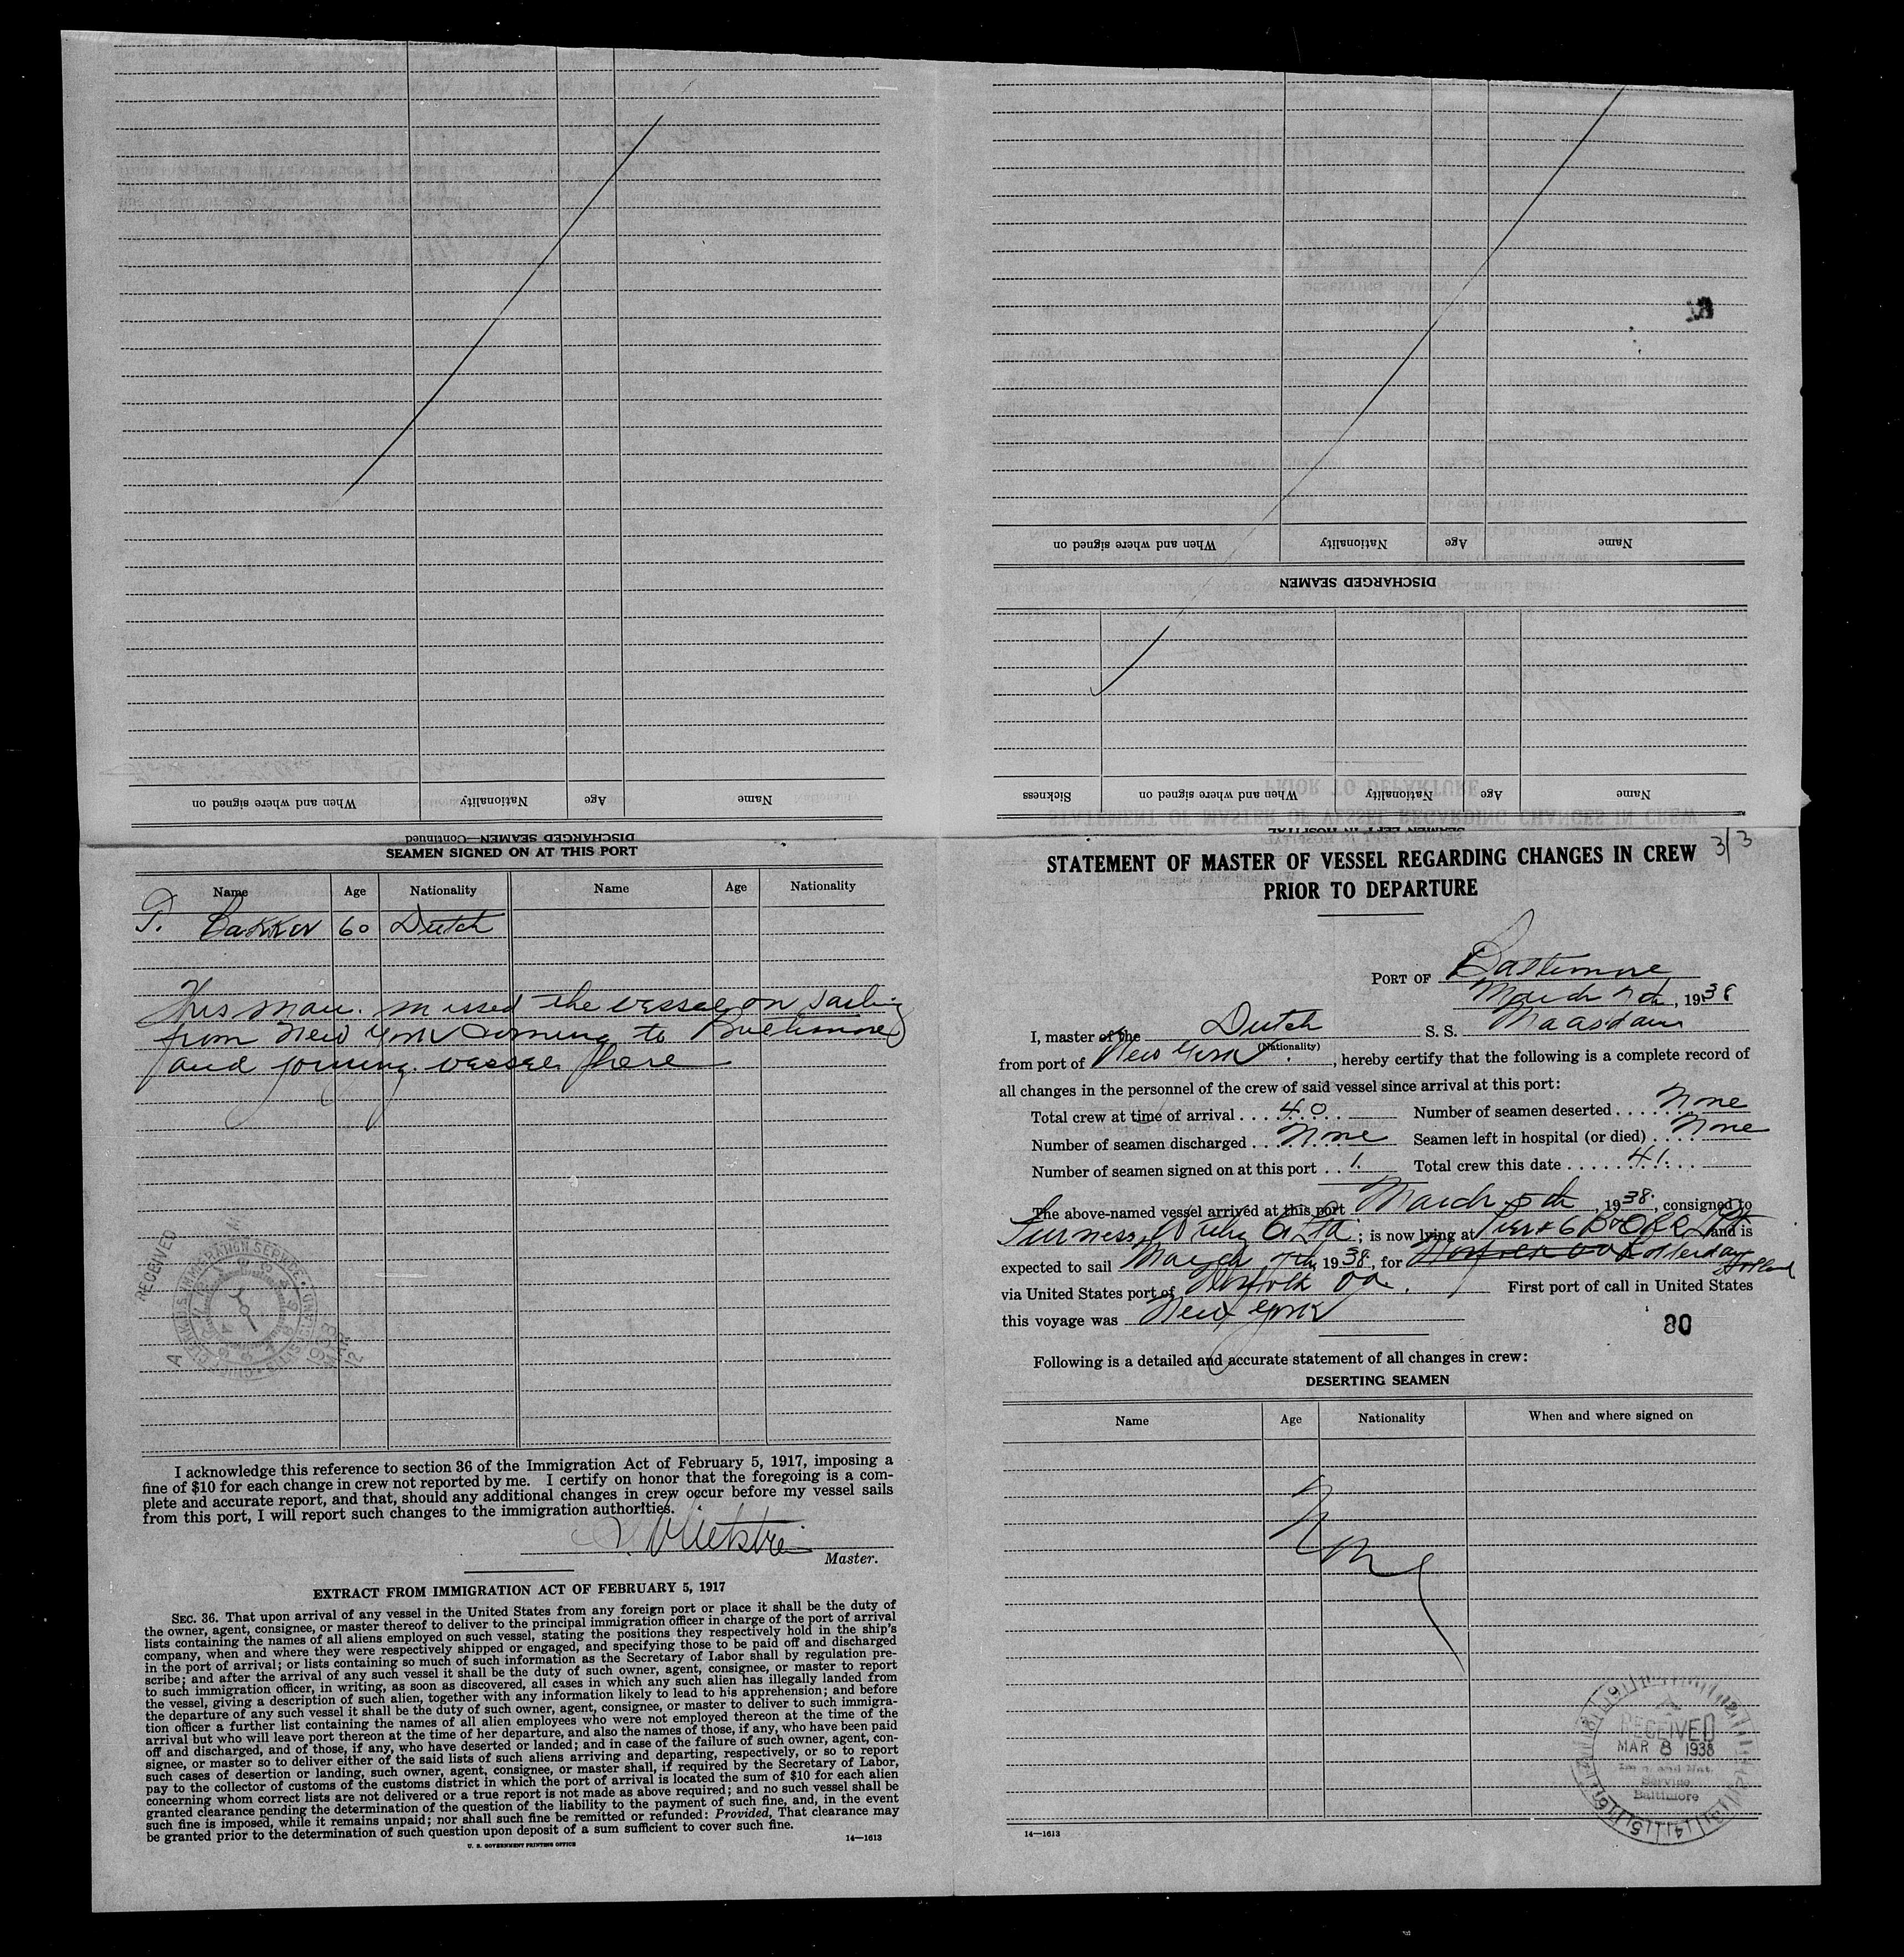 Name Age Nationality When and where signed on
DISCHARGED SEAMEN—Continued
Name Age Nationality When and where signed on
DISCHARGED SEAMEN
Name Age Nationality When and where signed on Sickness
SEAMEN LEFT IN HOSPITAL
SEAMEN SIGNED ON AT THIS PORT
Name Age Nationality Name Age Nationality
Bakker 60 Dutch
This man missed the vessel on sailing
from New York coming to Baltimore
and joining vessel here
RECEIVED
I acknowledge this reference to section 36 of the Immigration Act of February 5, 1917, imposing a
fine of $10 for each change in crew not reported by me. I certify on honor that the foregoing is a com-
plete and accurate report, and that, should any additional changes in crew occur before my vessel sails
from this port, I will report such changes to the immigration authorities.
Master.
EXTRACT FROM IMMIGRATION ACT OF FEBRUARY 5, 1917
SEC. 36. That upon arrival of any vessel in the United States from any foreign port or place it shall be the duty of
the owner, agent, consignee, or master thereof to deliver to the principal immigration officer in charge of the port of arrival
lists containing the names of all aliens employed on such vessel, stating the positions they respectively hold in the ship's
company, when and where they were respectively shipped or engaged, and specifying those to be paid off and discharged
in the port of arrival; or lists containing so much of such information as the Secretary of Labor shall by regulation pre-
scribe; and after the arrival of any such vessel it shall be the duty of such owner, agent, consignee, or master to report
to such immigration officer, in writing, as soon as discovered, all cases in which any such alien has illegally landed from
the vessel, giving a description of such alien, together with any information likely to lead to his apprehension; and before
the departure of any such vessel it shall be the duty of such owner, agent, consignee, or master to deliver to such immigra-
tion officer a further list containing the names of all alien employees who were not employed thereon at the time of the
arrival but who will leave port thereon at the time of her departure, and also the names of those, if any, who have been paid
off and discharged, and of those, if any, who have deserted or landed; and in case of the failure of such owner, agent, con-
signee, or master so to deliver either of the said lists of such aliens arriving and departing, respectively, or so to report
such cases of desertion or landing, such owner, agent, consignee, or master shall, if required by the Secretary of Labor,
pay to the collector of customs of the customs district in which the port of arrival is located the sum of $10 for each alien
concerning whom correct lists are not delivered or a true report is not made as above required; and no such vessel shall be
granted clearance pending the determination of the question of the liability to the payment of such fine, and, in the event
such fine is imposed, while it remains unpaid; nor shall such fine be remitted or refunded: Provided, That clearance may
be granted prior to the determination of such question upon deposit of a sum sufficient to cover such fine.
U. S. GOVERNMENT PRINTING OFFICE 14—1613
STATEMENT OF MASTER OF VESSEL REGARDING CHANGES IN CREW 3/3
PRIOR TO DEPARTURE
PORT OF Baltimore
March 7th, 1938
I, master of the Dutch S. S. Maasdam
(Nationality)
from port of New York, hereby certify that the following is a complete record of
all changes in the personnel of the crew of said vessel since arrival at this port:
Total crew at time of arrival 40 Number of seamen deserted None
Number of seamen discharged None Seamen left in hospital (or died) None
Number of seamen signed on at this port 1 Total crew this date 41
The above-named vessel arrived at this port March 5th, 1938, consigned to
Furness Withy Co Ltd; is now lying at Pier 6 B&O RR and is
expected to sail March 7th, 1938, for Rotterdam Holland
via United States port of Norfolk Va. First port of call in United States
this voyage was New York
80
Following is a detailed and accurate statement of all changes in crew:
DESERTING SEAMEN
Name Age Nationality When and where signed on
RECEIVED
MAR 8 1938
Imm. and Nat.
Service
Baltimore
14—1613